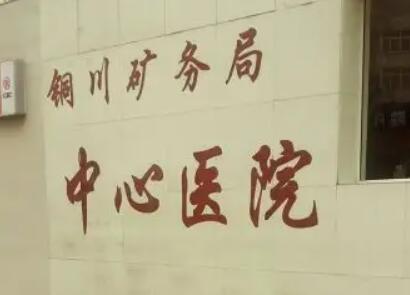 铜川矿务局
中心医院